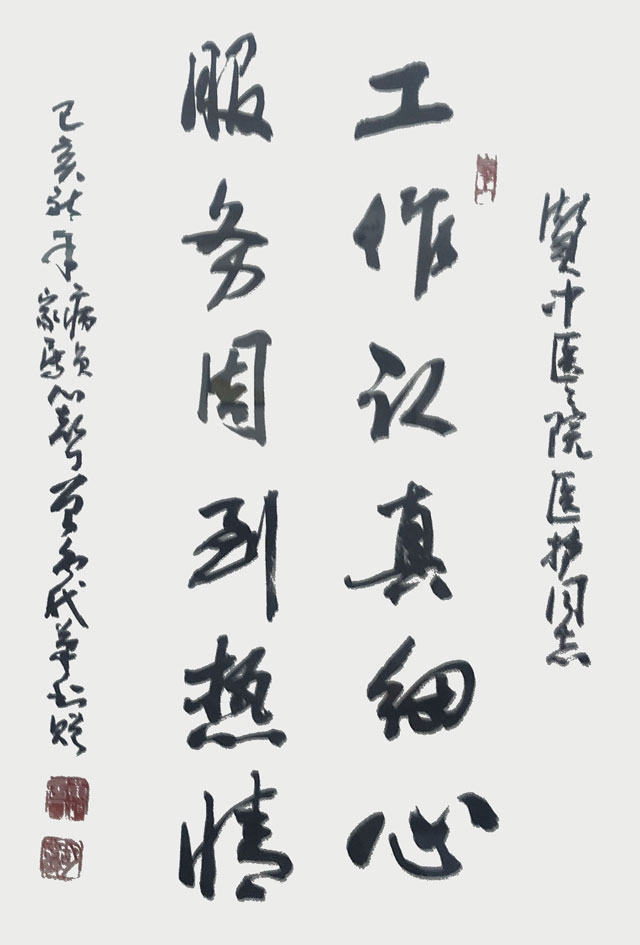 赞中医々院医护同志
工作认真细心
服务周到热情
己亥年病员家属心声书赠